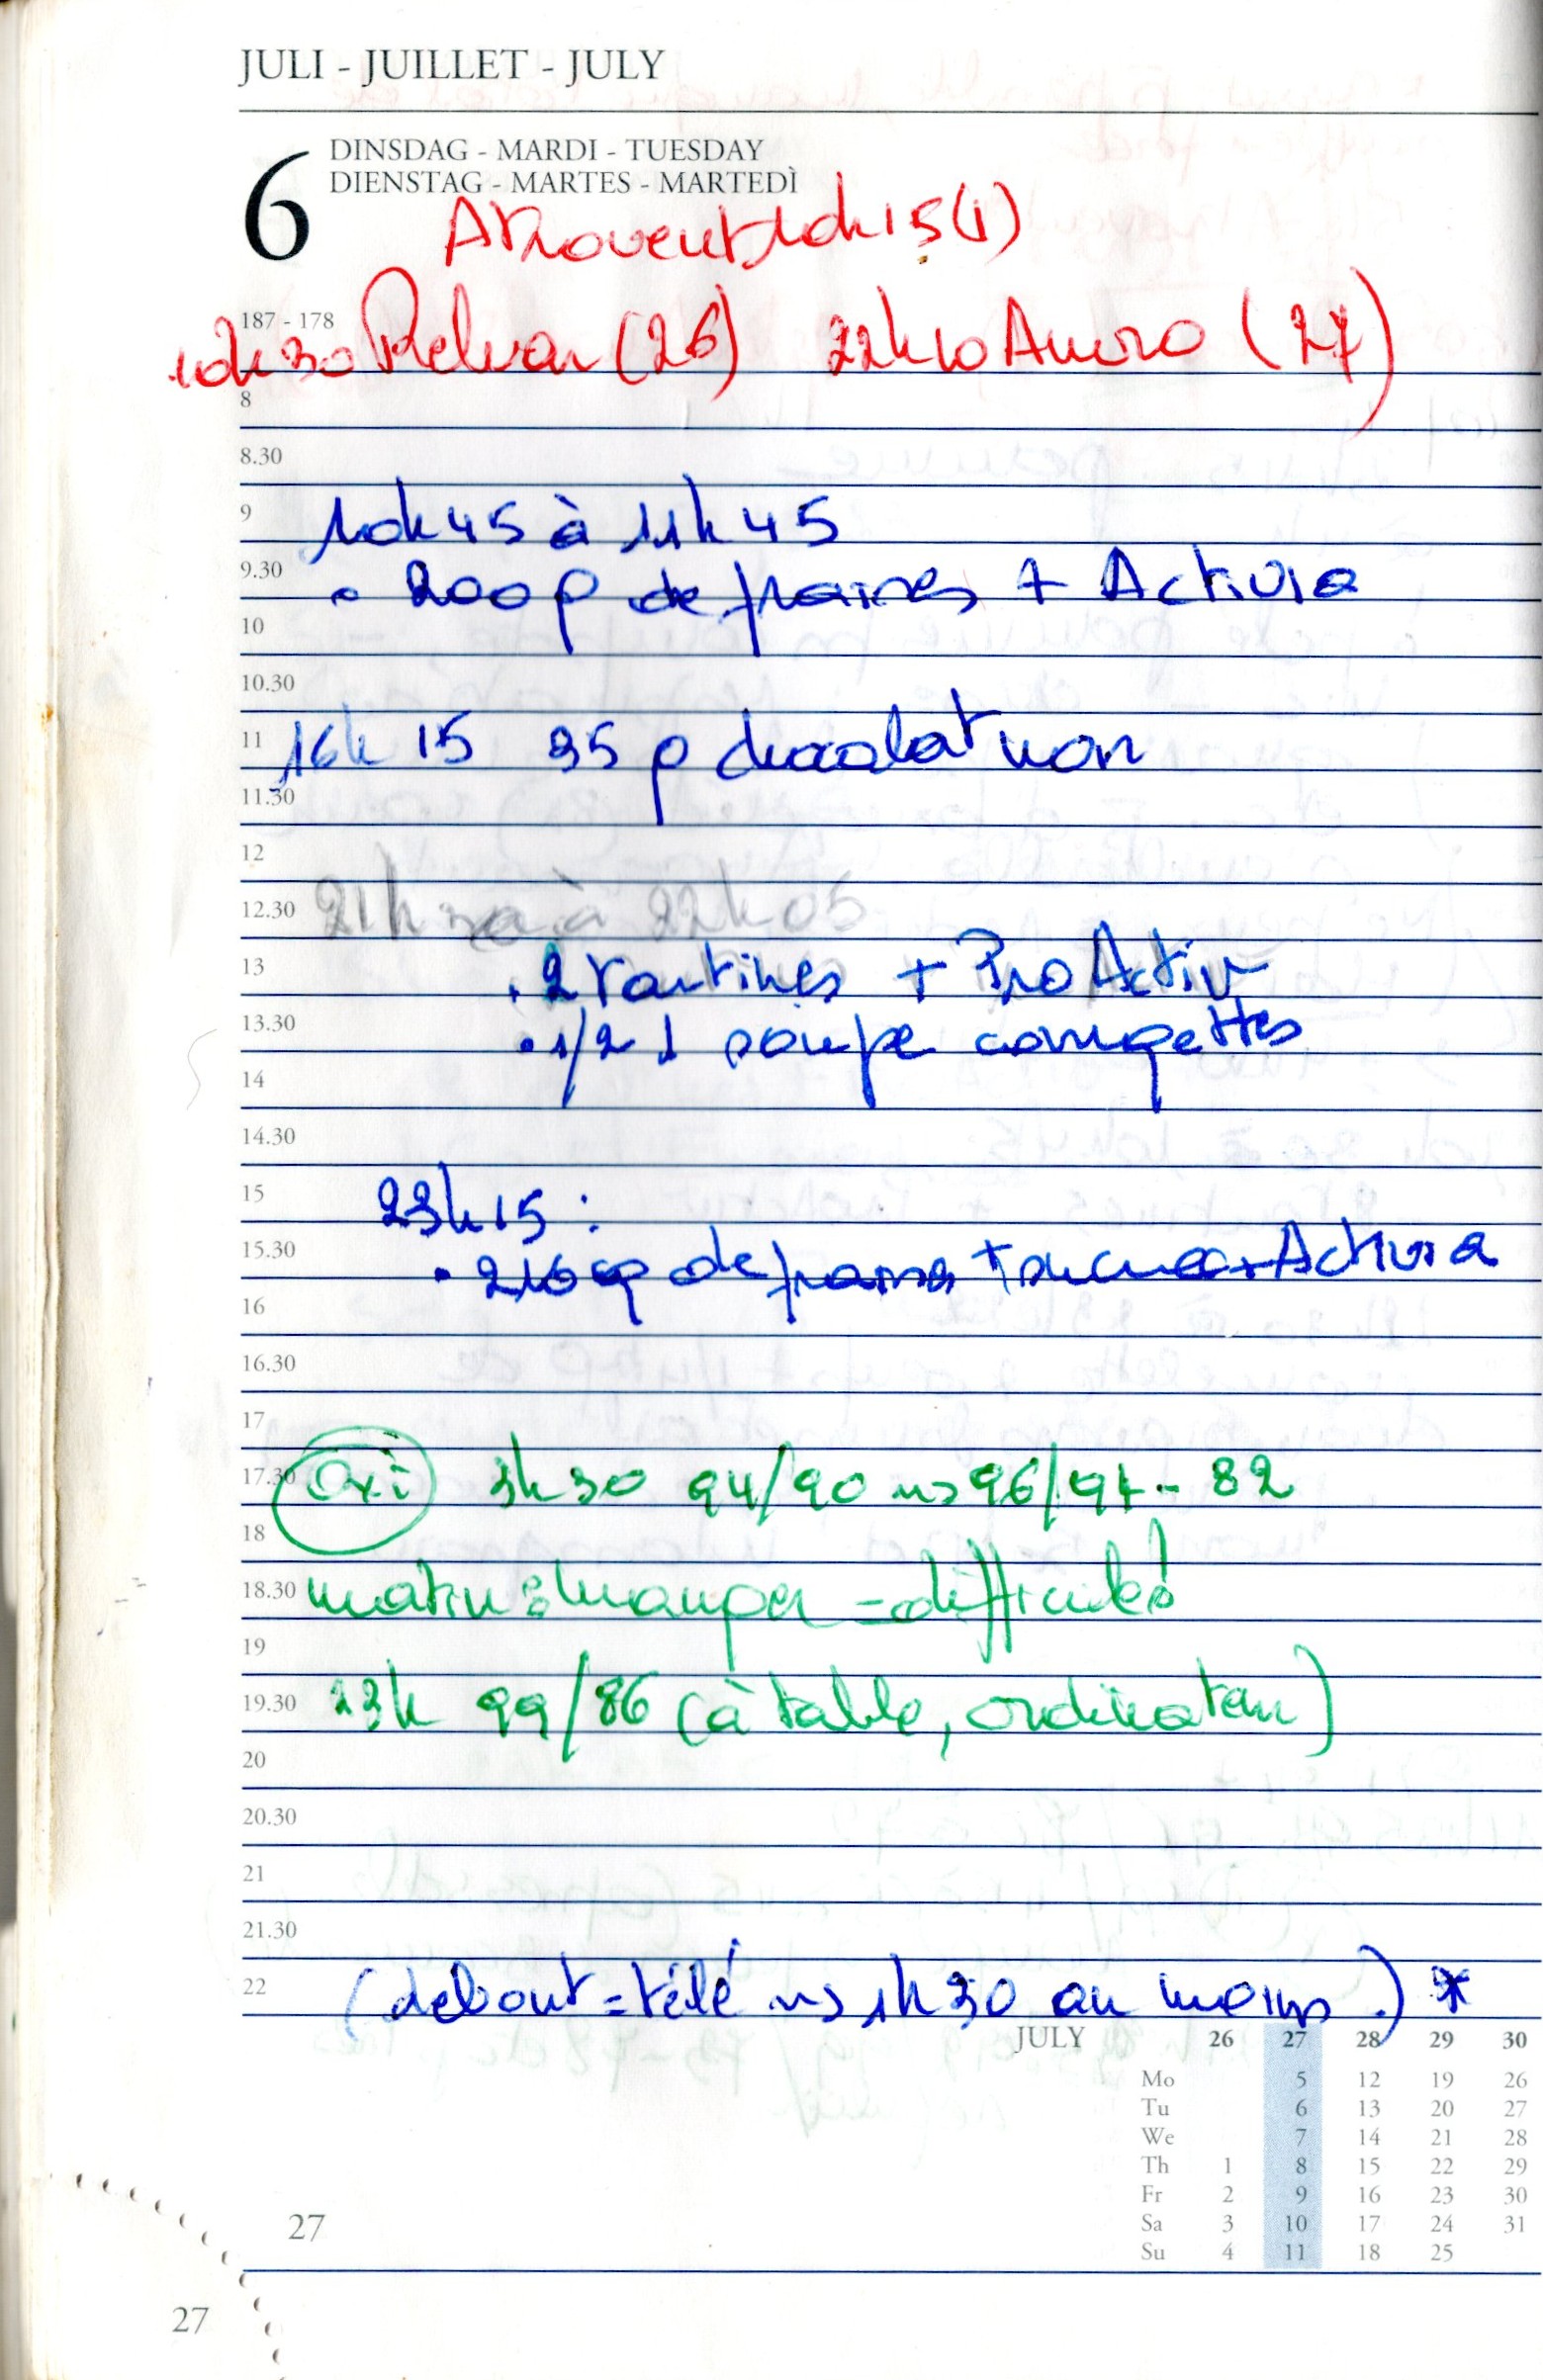 JULI - JUILLET - JULY
6
DINSDAG - MARDI - TUESDAY
DIENSTAG - MARTES - MARTEDÌ
Atrovent 10h15 (1)
187 - 178
10h30 Relvar (26) 22h10 Anoro (27)
8
8.30
9
10h45 à 11h45
9.30
• 200 g de fraises + Activia
10
10.30
11
16h15 35 g chocolat noir
11.30
12
12.30
21h à 22h05
13
• 2 tartines + ProActiv
13.30
• 1/2 l soupe courgettes
14
14.30
15
23h15 :
15.30
• 210 g de fraises + sucre + Activia
16
16.30
17
17.30
Oxi 3h30 94/90 ~> 96/94 - 82
18
18.30
matin : = difficile!
19
19.30
23h 99/86 (à table, ordinateur)
20
20.30
21
21.30
22
(debout = télé ~> 1h30 au moins.) *
JULY 26 27 28 29 30
Mo 5 12 19 26
Tu 6 13 20 27
We 7 14 21 28
Th 1 8 15 22 29
Fr 2 9 16 23 30
Sa 3 10 17 24 31
Su 4 11 18 25
27
27